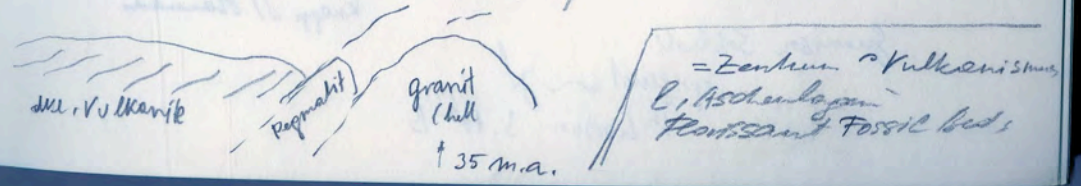 Vulkanik
Pegmatit
granit
hell
35 m.a.
= Zentrum Vulkanismus
Aschenlagen
Florissant Fossil beds